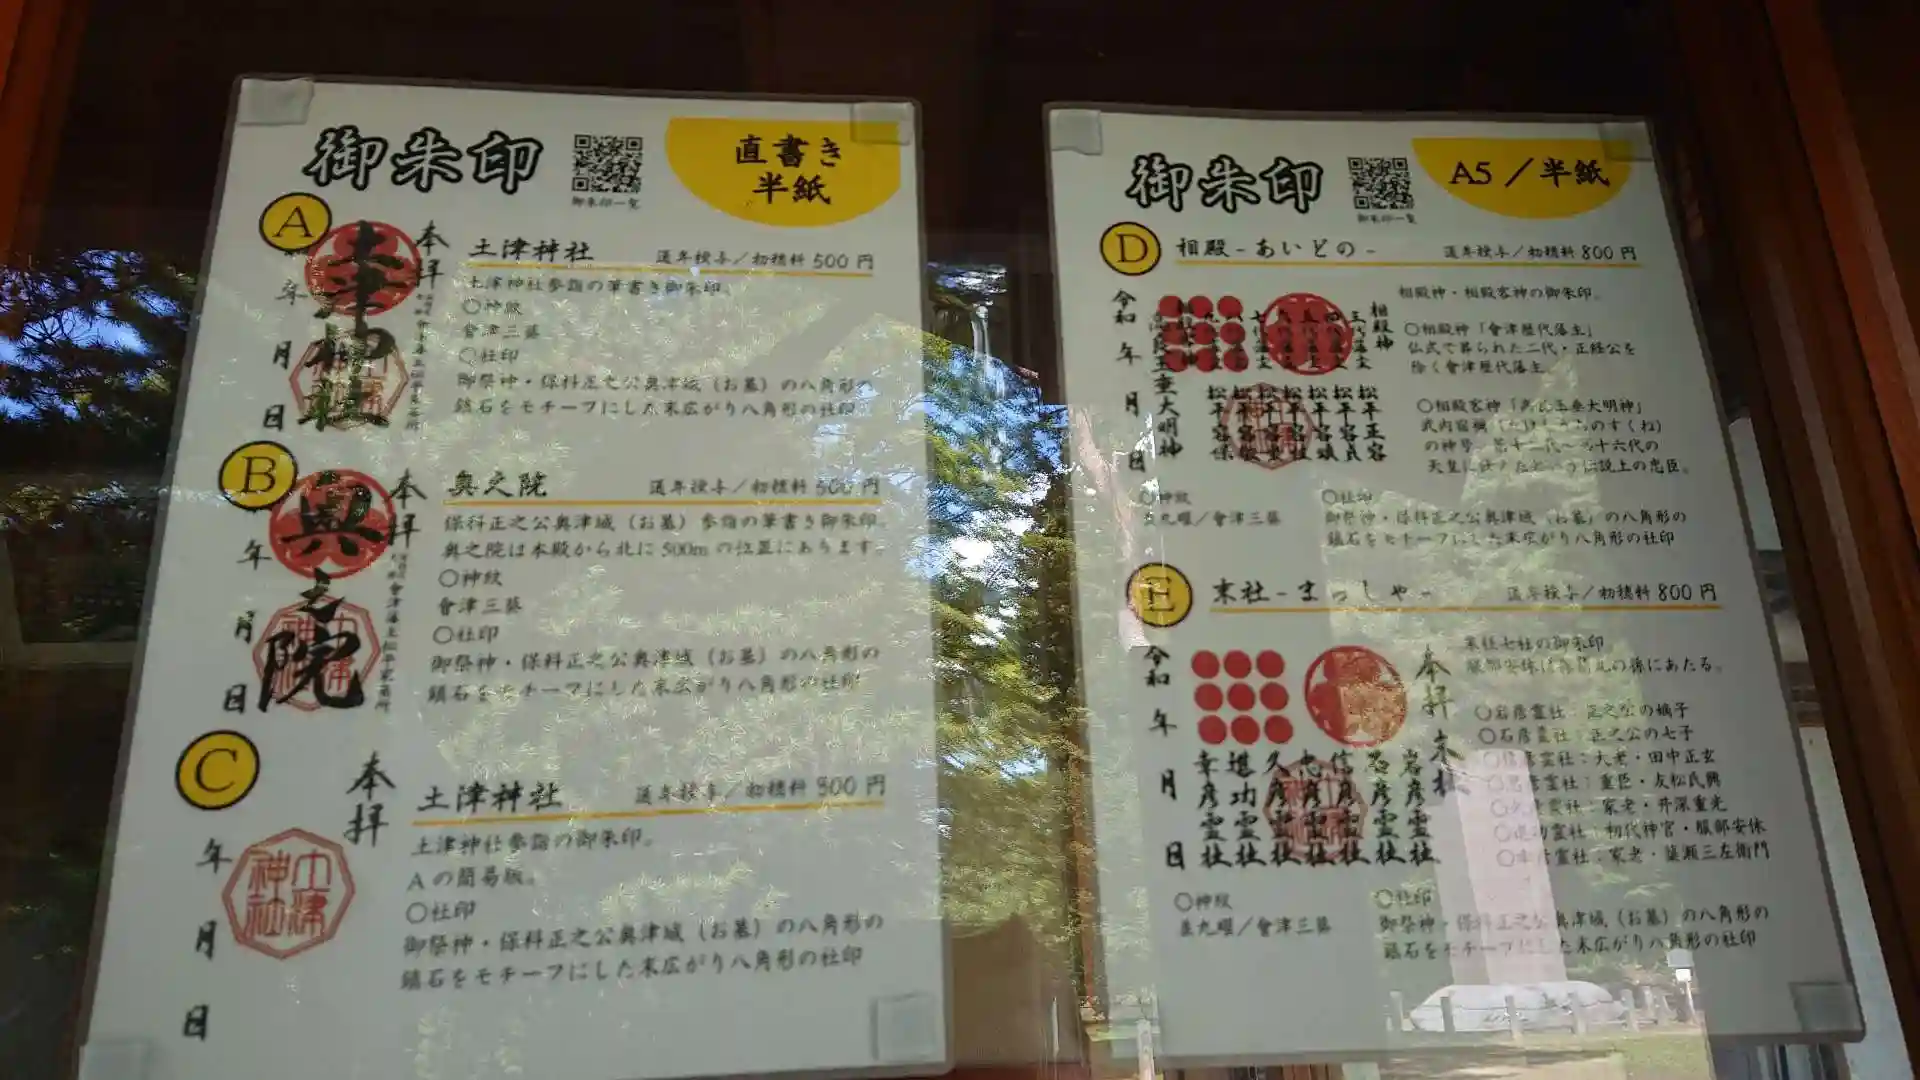 御朱印
御朱印一覧
直書き
半紙
A
本拝
土津神社
年
月
日
土津神社
通年授与／初穂料 500 円
土津神社参詣の筆書き御朱印。
〇神紋
會津三葵
〇社印
御祭神・保科正之公奥津城（お墓）の八角形の
鎮石をモチーフにした末広がり八角形の社印
B
本拝
奥之院
年
月
日
奥之院
通年授与／初穂料 500 円
保科正之公奥津城（お墓）参詣の筆書き御朱印。
奥之院は本殿から北に 500m の位置にあります。
〇神紋
會津三葵
〇社印
御祭神・保科正之公奥津城（お墓）の八角形の
鎮石をモチーフにした末広がり八角形の社印
C
本拝
年
月
日
土津神社
土津神社
通年授与／初穂料 300 円
土津神社参詣の御朱印。
A の簡易版。
〇社印
御祭神・保科正之公奥津城（お墓）の八角形の
鎮石をモチーフにした末広がり八角形の社印
御朱印
御朱印一覧
A5 ／半紙
D
相殿 - あいどの -
通年授与／初穂料 800 円
相殿神・相殿客神の御朱印。
〇相殿神「會津歴代藩主」
仏式で葬られた二代・正経公を
除く會津歴代藩主
〇相殿客神「高良玉垂大明神」
の神号。第十二代～第十六代の
天皇に仕えたという伝説上の忠臣。
相殿神
松平正容
松平容貞
松平容頌
松平容住
松平容衆
松平容敬
松平容保
令和
年
月
日
〇神紋
並九曜／會津三葵
〇社印
御祭神・保科正之公奥津城（お墓）の八角形の
鎮石をモチーフにした末広がり八角形の社印
E
末社 - まっしゃ -
通年授与／初穂料 800 円
末社七社の御朱印。
〇岩彦霊社：正之公の嫡子
〇石彦霊社：正之公の七子
〇信彦霊社：大老・田中正玄
〇忠彦霊社：重臣・友松氏興
〇久彦霊社：家老・井深重光
〇進功霊社：初代神官・服部安休
〇幸彦霊社：家老・簗瀬三左衛門
本拝
末社
岩彦霊社
石彦霊社
信彦霊社
忠彦霊社
久彦霊社
進功霊社
幸彦霊社
令和
年
月
日
〇神紋
並九曜／會津三葵
〇社印
御祭神・保科正之公奥津城（お墓）の八角形の
鎮石をモチーフにした末広がり八角形の社印